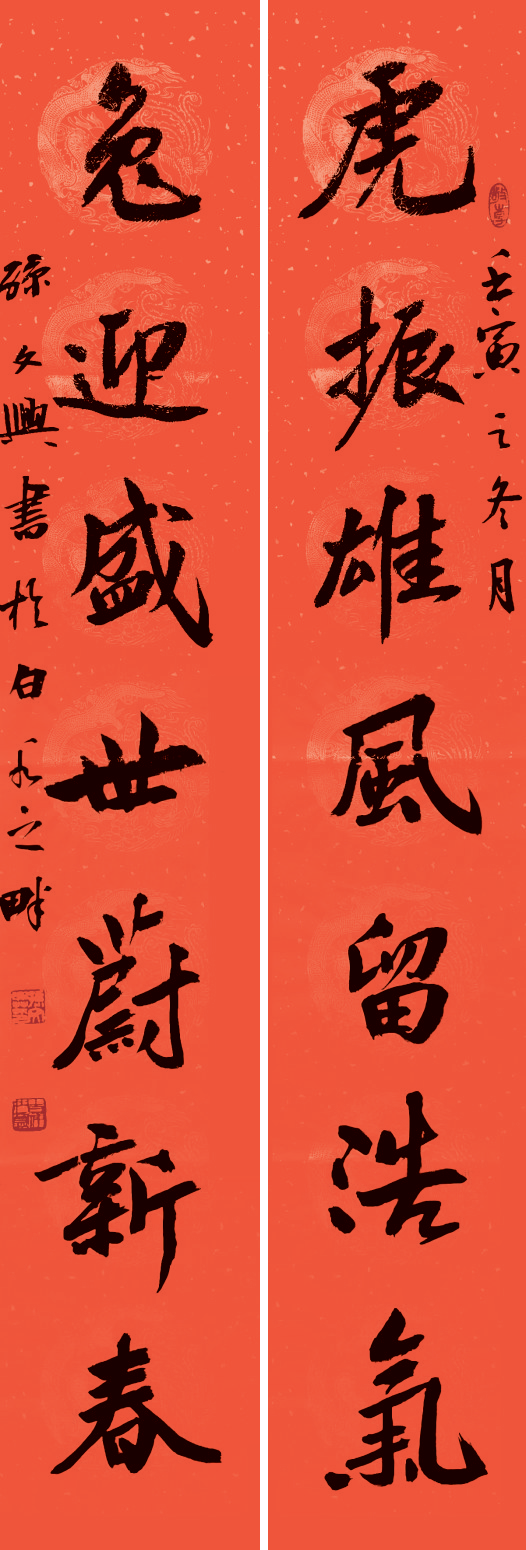 虎振雄風留浩氣
壬寅之冬月
兔迎盛世蔚新春
孫文興書於白水之畔